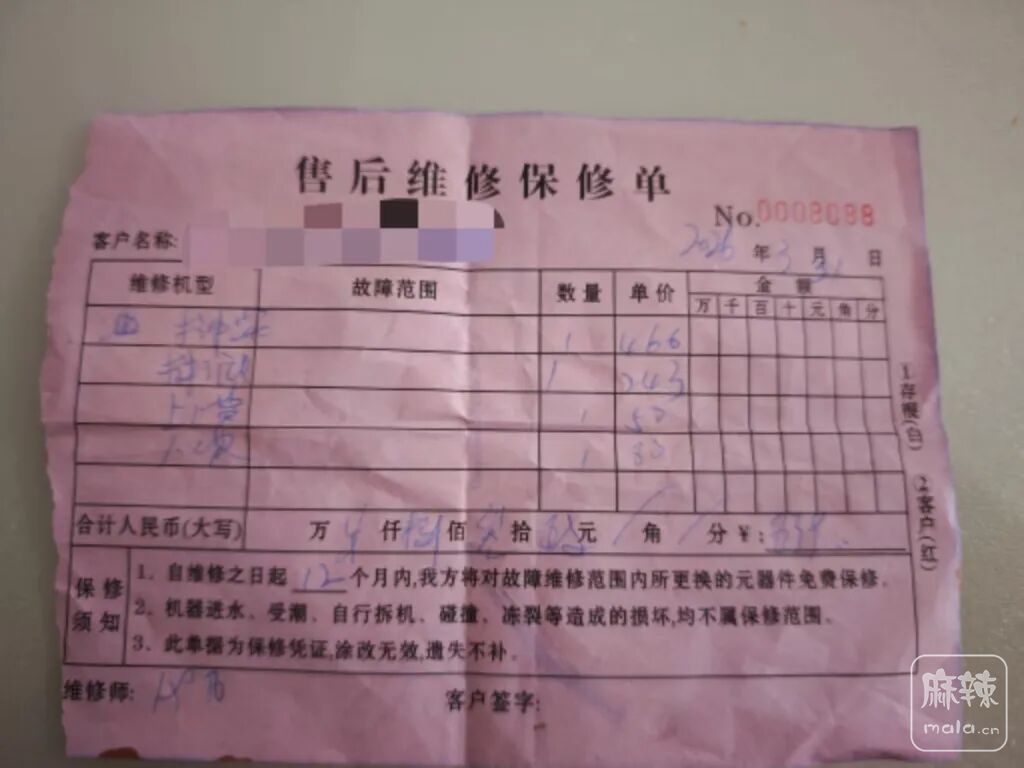 售后维修保修单
No.0008088
客户名称:
2026 年 3 月 31 日
维修机型 故障范围 数量 单价 金额
万 千 百 十 元 角 分
1 466
1 243
1 50
1 80
合计人民币(大写) 万 仟 佰 拾 元 角 分 ¥:
保修须知
1、自维修之日起 12 个月内,我方将对故障维修范围内所更换的元器件免费保修。
2、机器进水、受潮、自行拆机、碰撞、冻裂等造成的损坏,均不属保修范围。
3、此单据为保修凭证,涂改无效,遗失不补。
维修师:
客户签字:
1.存根(白)
2.客户(红)
麻辣
mala.cn